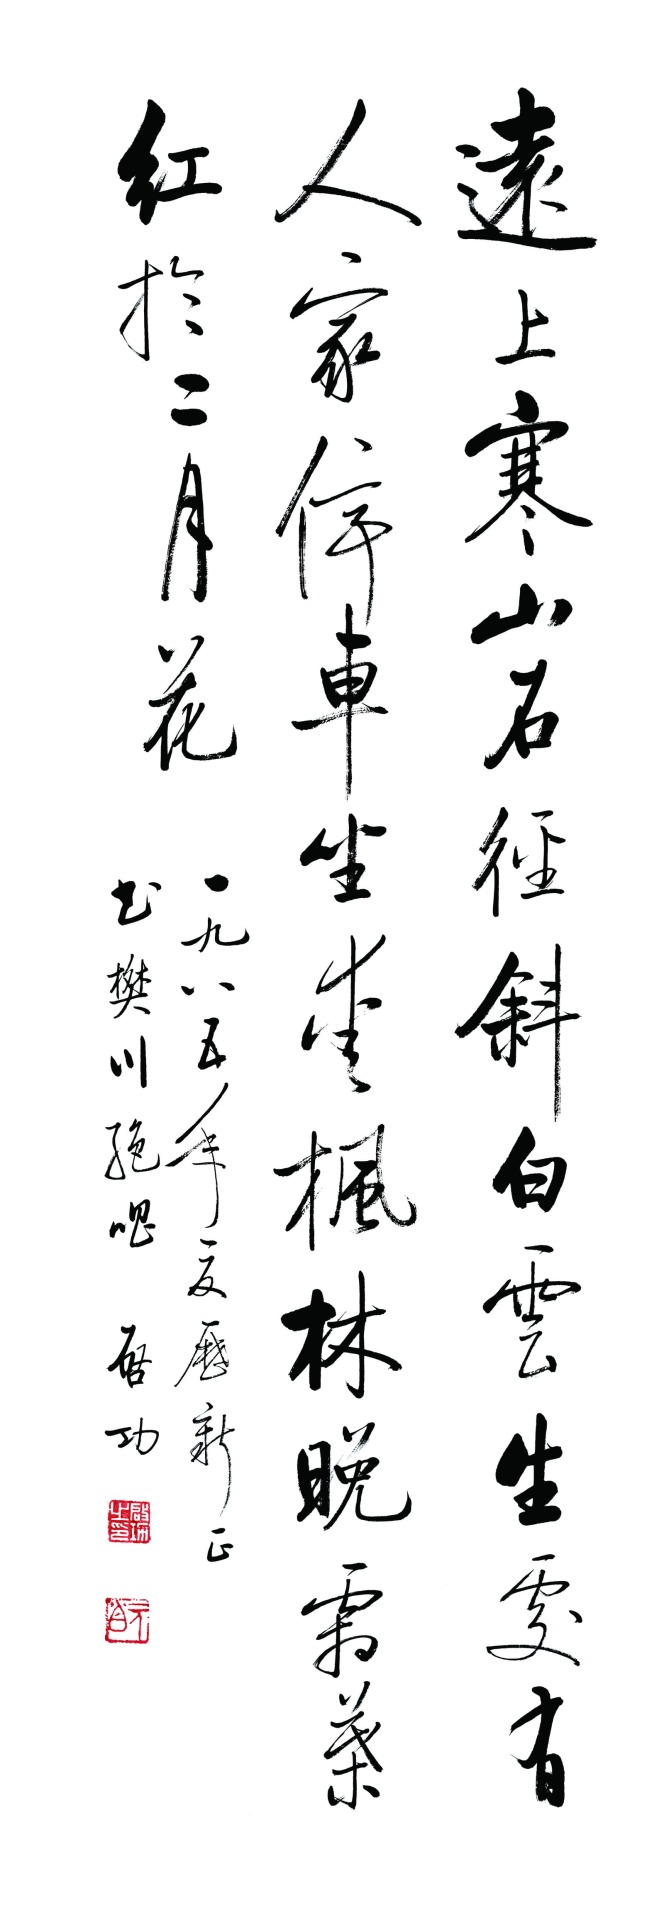 遠上寒山石徑斜白雲生處有
人家停車坐愛楓林晚霜葉
紅於二月花
一九八五年夏歷新正
书樊川絶唱 启功
啟功之印
元白